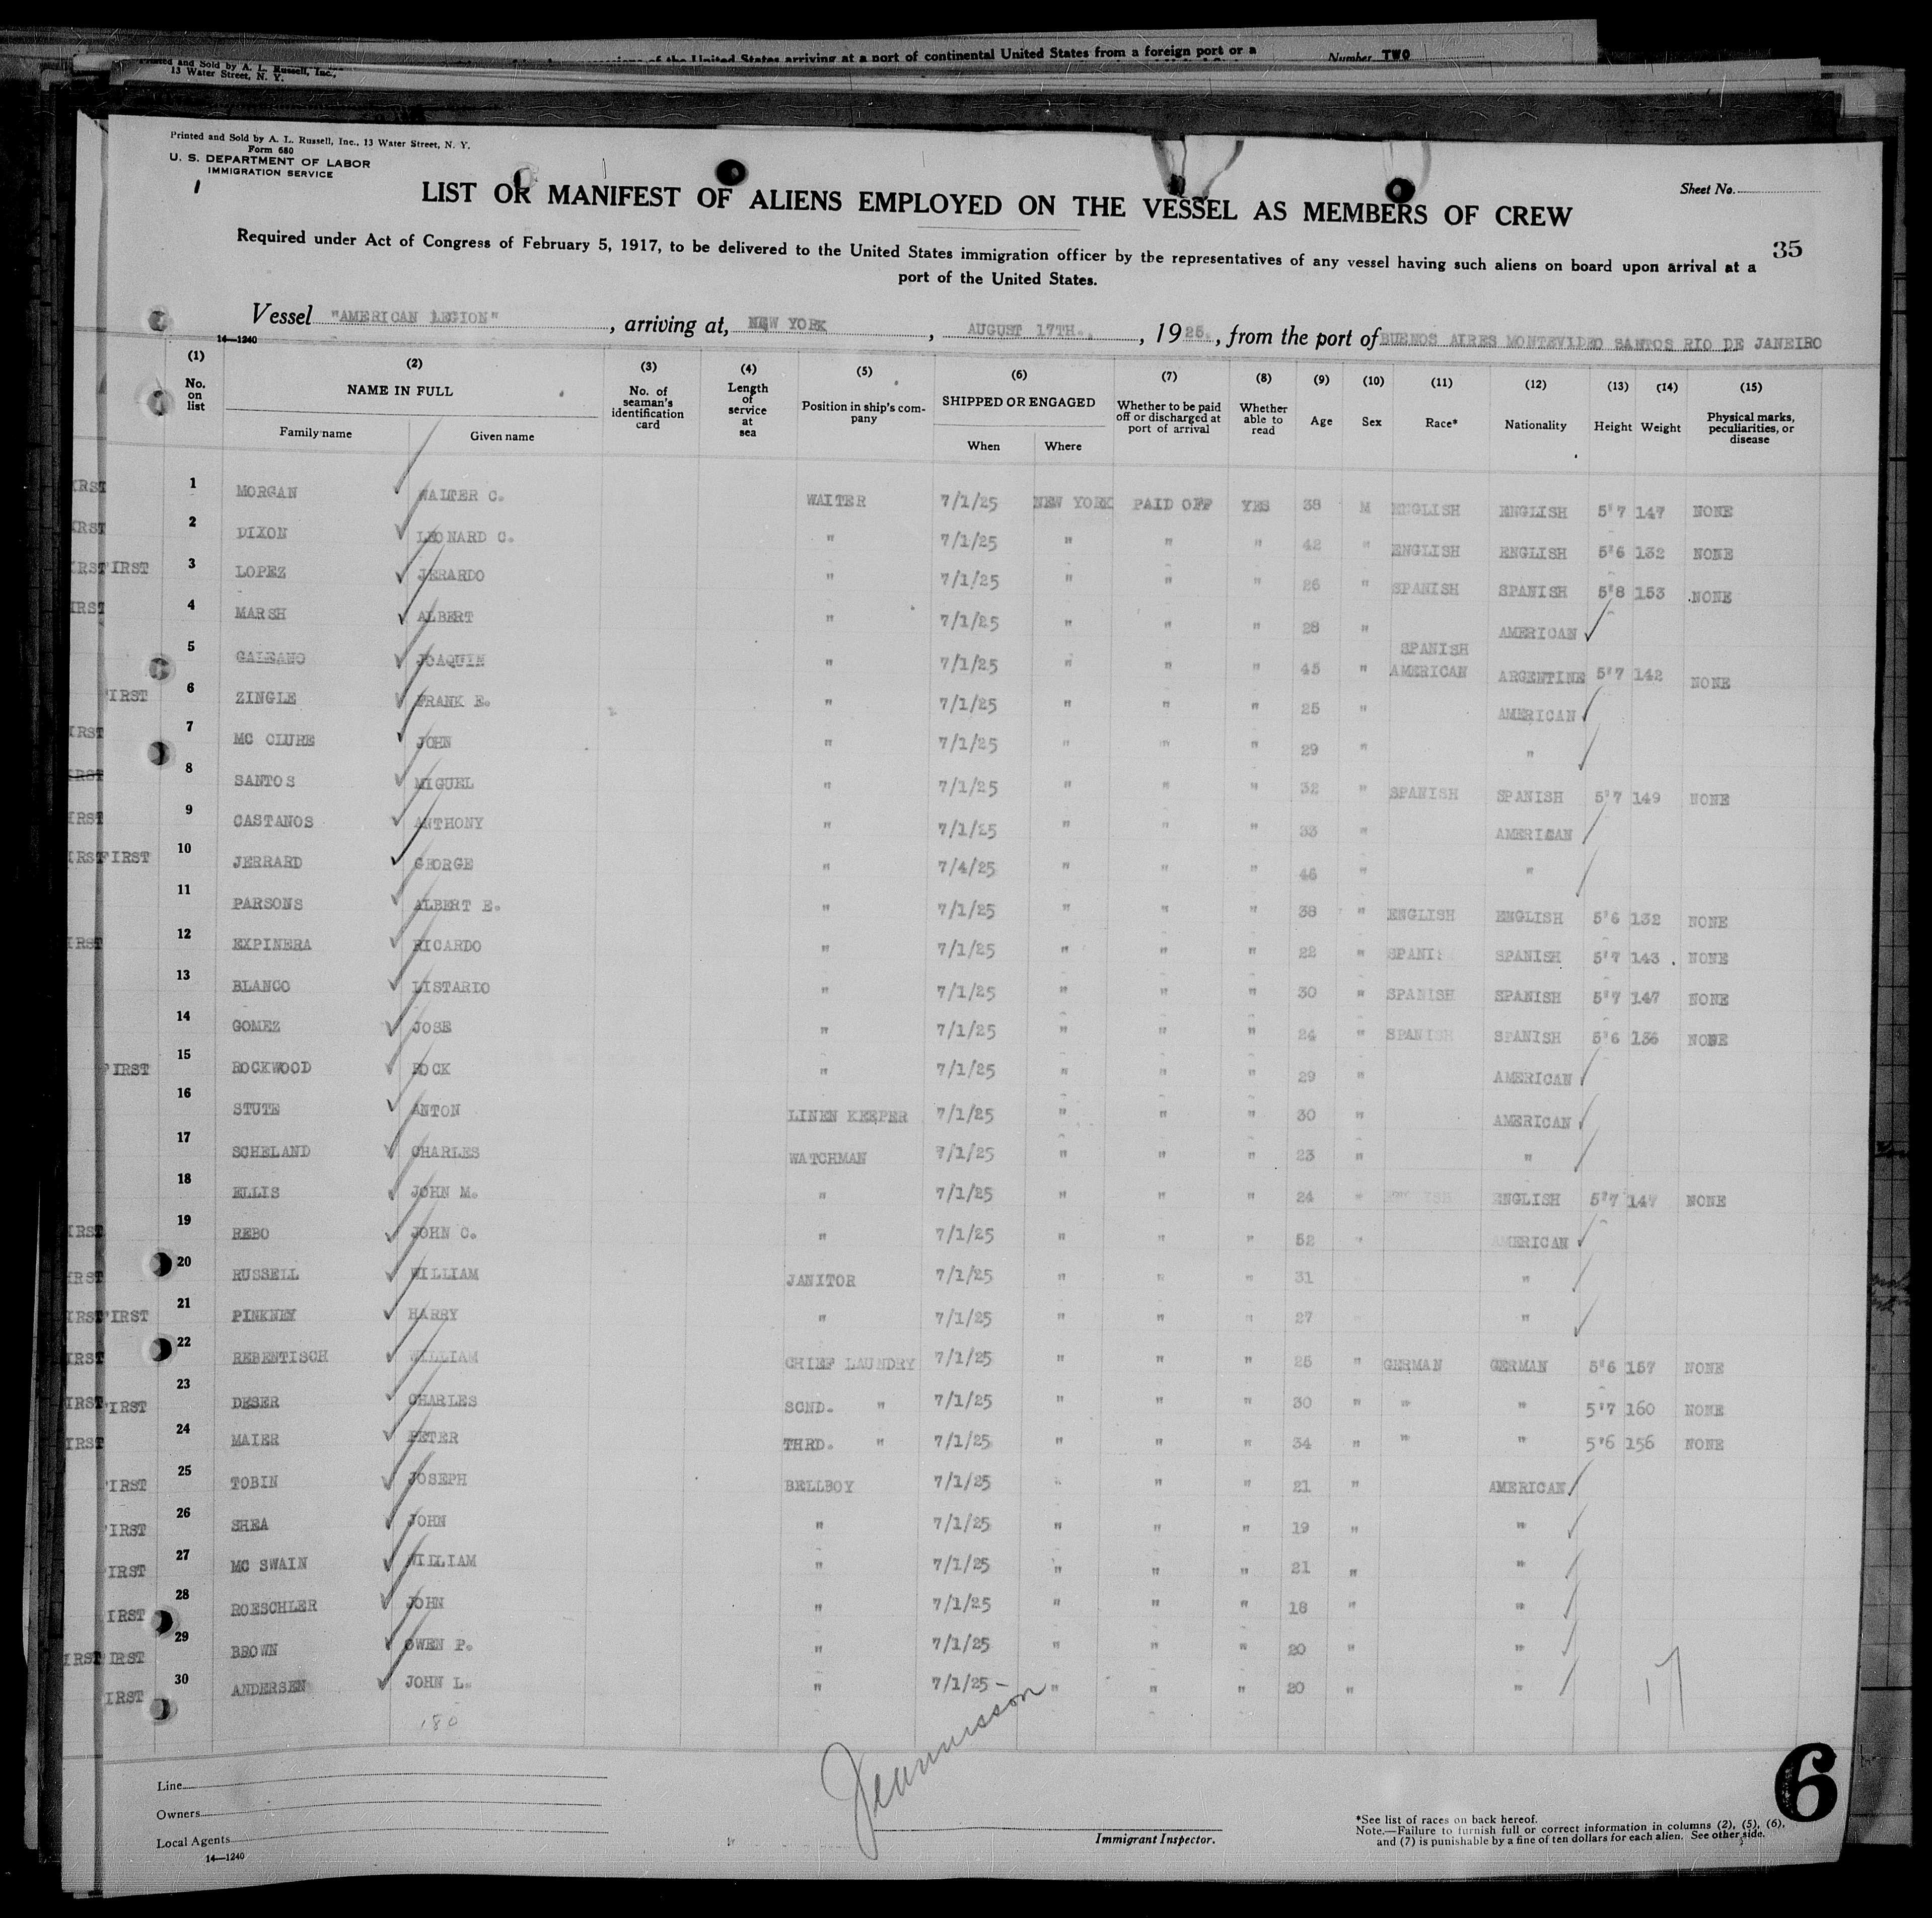 sions of the United States arriving at a port of continental United States from a foreign port or a
Number TWO
Printed and Sold by A. L. Russell, Inc.,
13 Water Street, N. Y.
Printed and Sold by A. L. Russell, Inc., 13 Water Street, N. Y.
Form 680
U. S. DEPARTMENT OF LABOR
IMMIGRATION SERVICE
Sheet No.
LIST OR MANIFEST OF ALIENS EMPLOYED ON THE VESSEL AS MEMBERS OF CREW
35
Required under Act of Congress of February 5, 1917, to be delivered to the United States immigration officer by the representatives of any vessel having such aliens on board upon arrival at a
port of the United States.
Vessel "AMERICAN LEGION", arriving at, NEW YORK, AUGUST 17TH., 1925, from the port of BUENOS AIRES MONTEVIDEO SANTOS RIO DE JANEIRO
14—1240
(1) (2) (3) (4) (5) (6) (7) (8) (9) (10) (11) (12) (13) (14) (15)
No. on list NAME IN FULL Family name Given name No. of seaman's identification card Length of service at sea Position in ship's company SHIPPED OR ENGAGED When Where Whether to be paid off or discharged at port of arrival Whether able to read Age Sex Race* Nationality Height Weight Physical marks, peculiarities, or disease
1 MORGAN WALTER C. WAITER 7/1/25 NEW YORK PAID OFF YES 38 M ENGLISH ENGLISH 5'7 147 NONE
2 DIXON LEONARD C. " 7/1/25 " " " 42 " ENGLISH ENGLISH 5'6 132 NONE
3 LOPEZ JERARDO " 7/1/25 " " " 26 " SPANISH SPANISH 5'8 153 NONE
4 MARSH ALBERT " 7/1/25 " " " 28 " AMERICAN
5 GALEANO JOAQUIN " 7/1/25 " " " 45 " SPANISH AMERICAN ARGENTINE 5'7 142 NONE
6 ZINGLE FRANK E. " 7/1/25 " " " 25 " AMERICAN
7 MC CLURE JOHN " 7/1/25 " " " 29 " "
8 SANTOS MIGUEL " 7/1/25 " " " 32 " SPANISH SPANISH 5'7 149 NONE
9 CASTANOS ANTHONY " 7/1/25 " " " 33 " AMERICAN
10 JERRARD GEORGE " 7/4/25 " " " 46 " "
11 PARSONS ALBERT E. " 7/1/25 " " " 38 " ENGLISH ENGLISH 5'6 132 NONE
12 EXPINERA RICARDO " 7/1/25 " " " 22 " SPANIS SPANISH 5'7 143 NONE
13 BLANCO LISTARDO " 7/1/25 " " " 30 " SPANISH SPANISH 5'7 147 NONE
14 GOMEZ JOSE " 7/1/25 " " " 24 " SPANISH SPANISH 5'6 136 NONE
15 ROCKWOOD ROCK " 7/1/25 " " " 29 " AMERICAN
16 STUTE ANTON LINEN KEEPER 7/1/25 " " " 30 " AMERICAN
17 SCHELAND CHARLES WATCHMAN 7/1/25 " " " 23 " "
18 ELLIS JOHN M. " 7/1/25 " " " 24 " ENGLISH ENGLISH 5'7 147 NONE
19 REBO JOHN C. " 7/1/25 " " " 52 " AMERICAN
20 RUSSELL WILLIAM JANITOR 7/1/25 " " " 31 "
21 PINKNEY HARRY " 7/1/25 " " " 27 "
22 REBENTISCH WILLIAM CHIEF LAUNDRY 7/1/25 " " " 25 " GERMAN GERMAN 5'6 157 NONE
23 DESER CHARLES SCND. " 7/1/25 " " " 30 " " " 5'7 160 NONE
24 MAIER PETER THRD. " 7/1/25 " " " 34 " " " 5'6 156 NONE
25 TOBIN JOSEPH BELLBOY 7/1/25 " " " 21 " AMERICAN
26 SHEA JOHN " 7/1/25 " " " 19 " "
27 MC SWAIN WILLIAM " 7/1/25 " " " 21 " "
28 ROESCHLER JOHN " 7/1/25 " " " 18 " "
29 BROWN OWEN P. " 7/1/25 " " " 20 " "
30 ANDERSEN JOHN L. " 7/1/25 " " " 20 " "
180
17
Line
Owners
Local Agents
14—1240
Immigrant Inspector.
*See list of races on back hereof.
Note.—Failure to furnish full or correct information in columns (2), (5), (6),
and (7) is punishable by a fine of ten dollars for each alien. See other side.
6